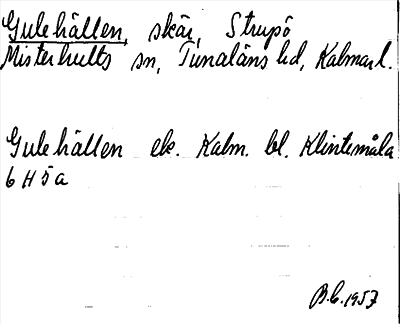 Gulehällen, skär, Strupö
Misterhults sn, Tunaläns hd, Kalmar l.
Gulehällen ek. Kalm. bl. Klintemåla
6 H 5 a
B.C. 1957